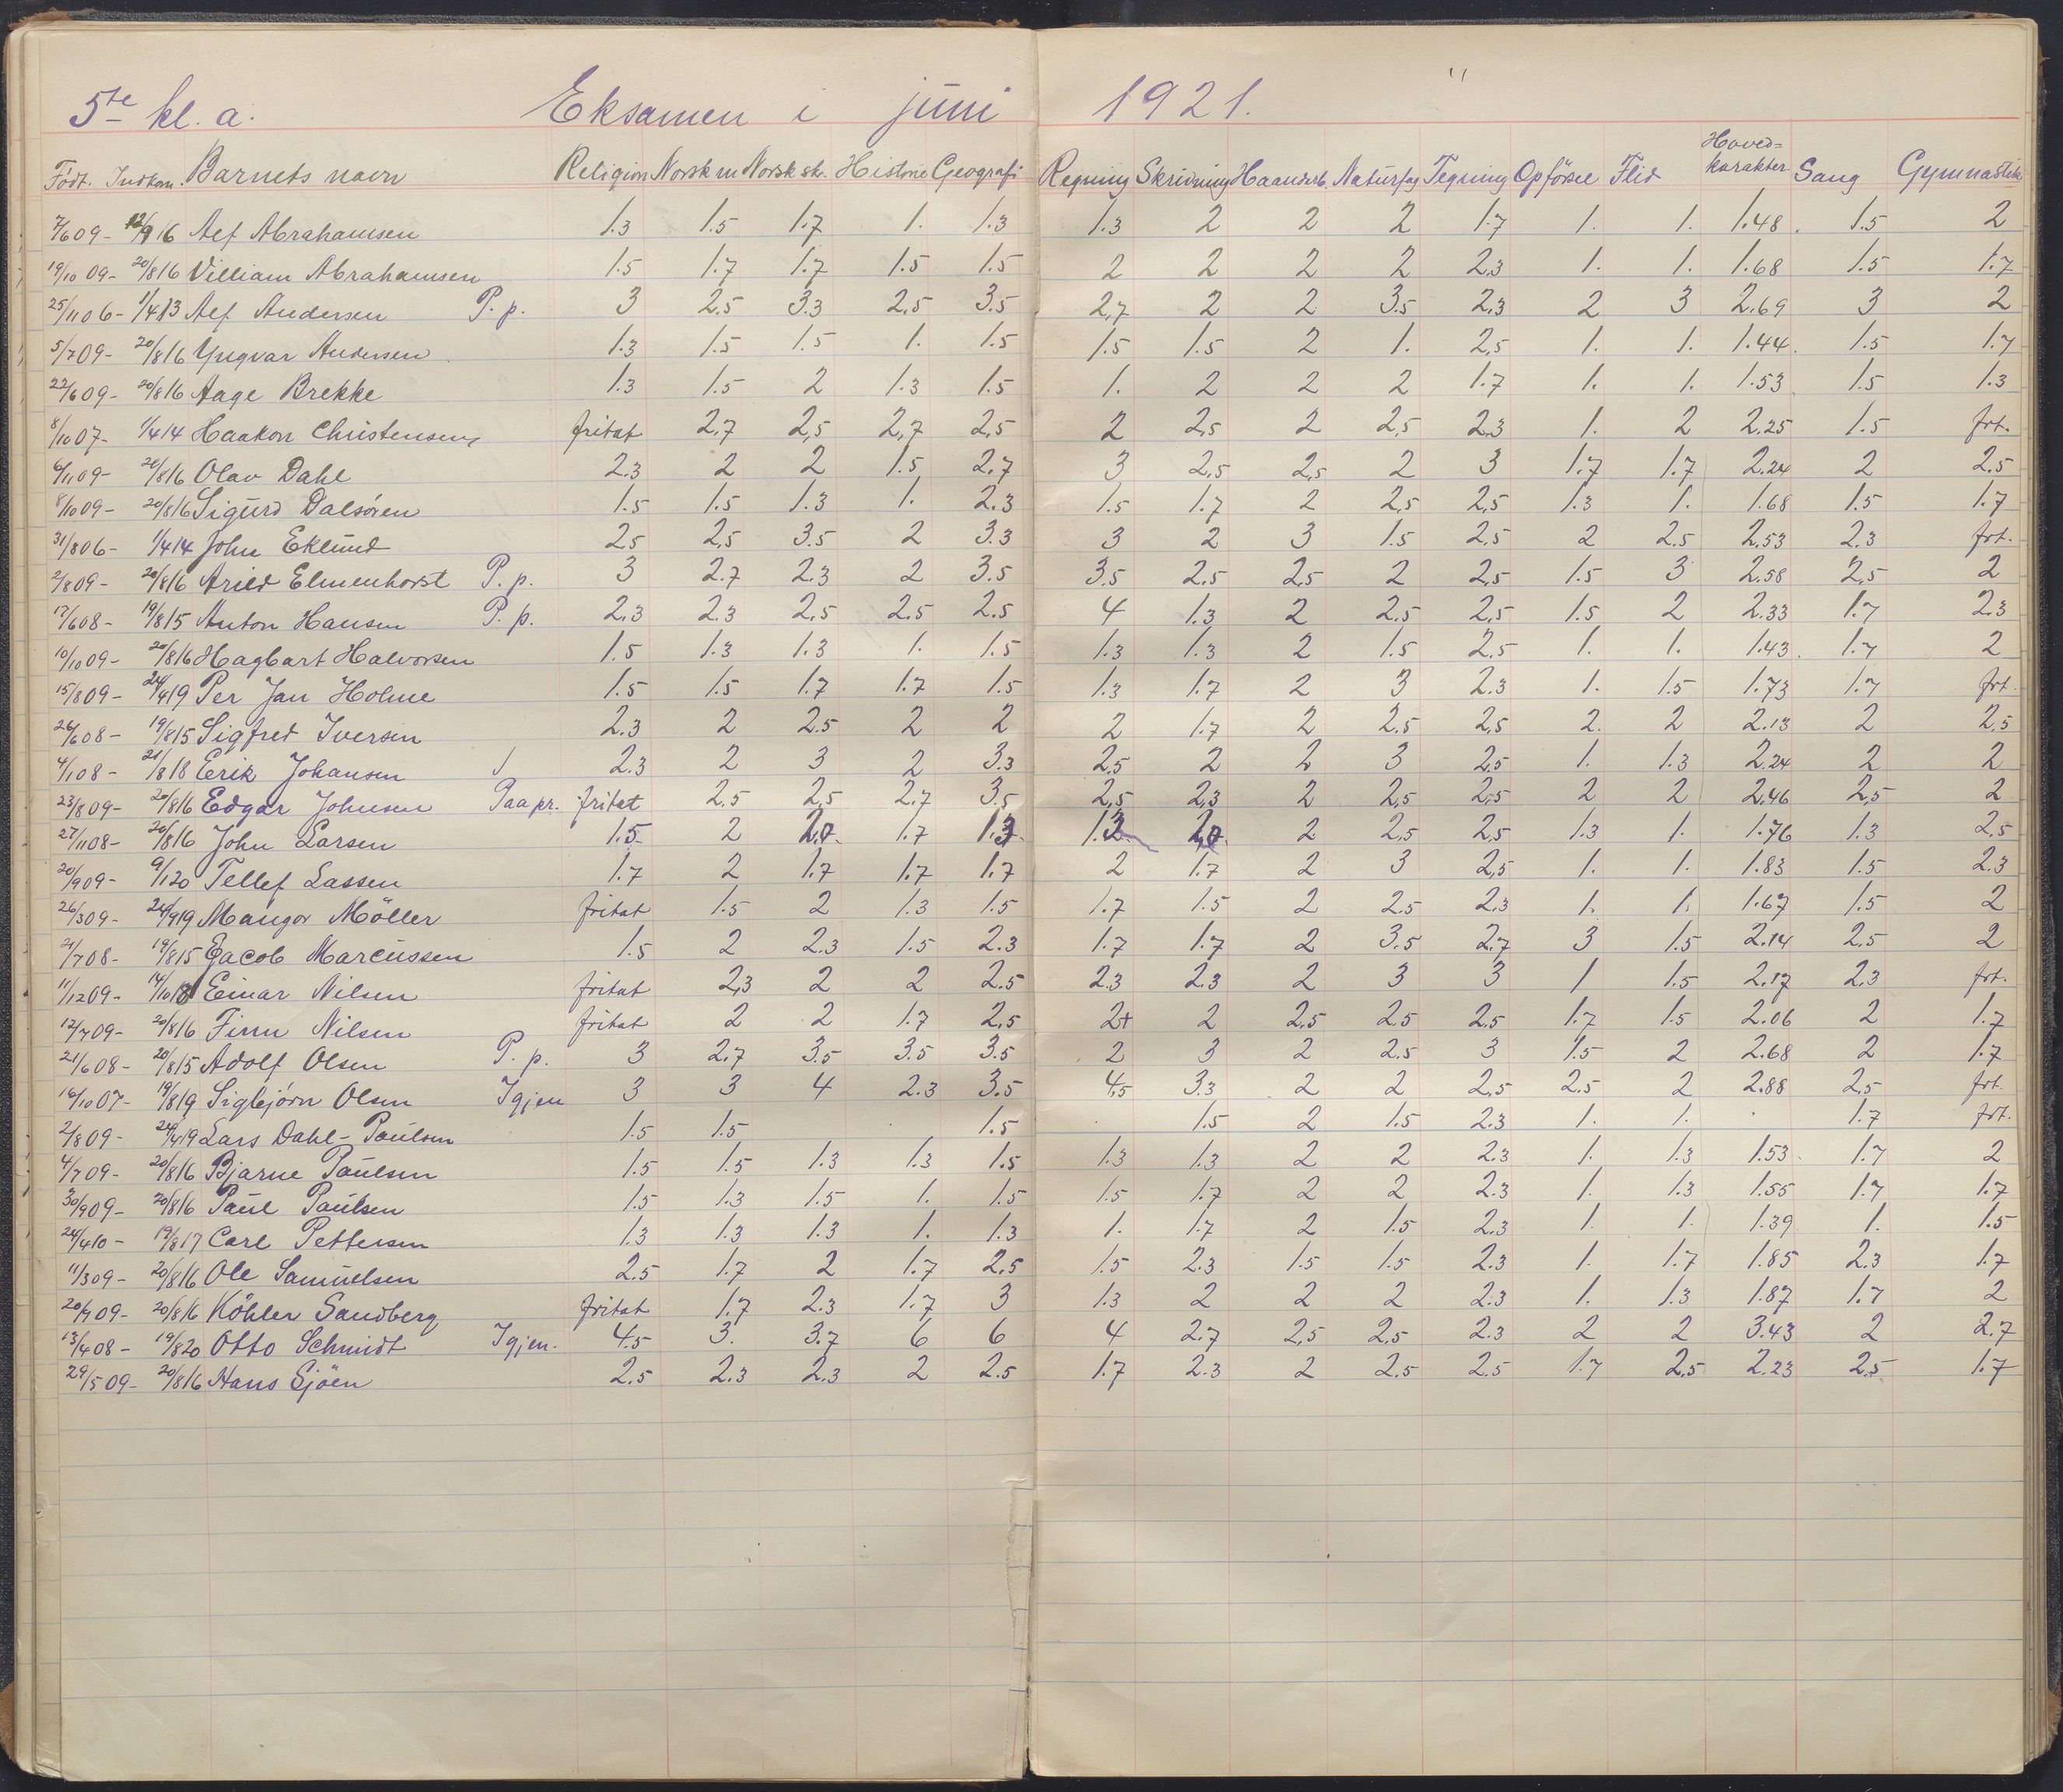 5te kl. a. Eksamen i juni 1921. "
Hoved-
Födt. Indkom. Barnets navn Religion Norsk m Norsk sk. Historie Geografi Regning Skrivning Haandarb. Naturfag Tegning Opförsel Flid karakter Sang Gymnastik
7/6 09- 12/9 16 Alf Abrahamsen 1.3 1.5 1.7 1. 1.3 1.3 2 2 2 1.7 1. 1. 1.48. 1.5 2
19/10 09- 20/8 16 Villiam Abrahamsen 1.5 1.7 1.7 1.5 1.5 2 2 2 2 2.3 1. 1. 1.68 1.5 1.7
25/11 06- 1/4 13 Alf Andersen P. p. 3 2.5 3.3 2.5 3.5 2.7 2 2 3.5 2.3 2 3 2.69 3 2
5/7 09- 20/8 16 Yngvar Andersen 1.3 1.5 1.5 1. 1.5 1.5 1.5 2 1. 2.5 1. 1. 1.44. 1.5 1.7
22/6 09- 20/8 16 Aage Brekke 1.3 1.5 2 1.3 1.5 1. 2 2 2 1.7 1. 1. 1.53. 1.5 1.3
8/10 07- 1/4 14 Haakon Christensen fritat 2.7 2.5 2.7 2.5 2 2.5 2 2.5 2.3 1. 2 2.25 1.5 frt.
6/11 09- 20/8 16 Olav Dahl 2.3 2 2 1.5 2.7 3 2.5 2.5 2 3 1.7 1.7 2.24 2 2.5
8/10 09- 20/8 16 Sigurd Dalsören 1.5 1.5 1.3 1. 2.3 1.5 1.7 2 2.5 2.5 1.3 1. 1.68 1.5 1.7
31/8 06- 1/4 14 John Eklund 2.5 2.5 3.5 2 3.3 3 2 3 1.5 2.5 2 2.5 2.53 2.3 frt.
2/8 09- 20/8 16 Arild Elmenhorst P. p. 3 2.7 2.3 2 3.5 3.5 2.5 2.5 2 2.5 1.5 3 2.58 2.5 2
17/6 08- 19/8 15 Anton Hansen P. p. 2.3 2.3 2.5 2.5 2.5 4 1.3 2 2.5 2.5 1.5 2 2.33 1.7 2.3
10/10 09- 20/8 16 Hagbart Halvorsen 1.5 1.3 1.3 1. 1.5 1.3 1.3 2 1.5 2.5 1. 1. 1.43. 1.7 2
15/8 09- 24/4 19 Per Jan Holme 1.5 1.5 1.7 1.7 1.5 1.3 1.7 2 3 2.3 1. 1.5 1.73 1.7 frt.
26/6 08- 19/8 15 Sigfred Iversen 2.3 2 2.5 2 2 2 1.7 2 2.5 2.5 2. 2 2.13 2 2.5
4/1 08- 21/8 18 Erik Johansen 2.3 2 3 2 3.3 2.5 2 2 3 2.5 1. 1.3 2.24 2 2
23/8 09- 20/8 16 Edgar Johnsen Paa pr. fritat 2.5 2.5 2.7 3.5 2.5 2.3 2 2.5 2.5 2 2 2.46 2.5 2
27/11 08- 20/8 16 John Larsen 1.5 2 1.7 2 2.5 2.5 1.3 1. 1.76 1.3 2.5
20/9 09- 9/1 20 Tellef Lassen 1.7 2 1.7 1.7 1.7 2 1.7 2 3 2.5 1. 1. 1.83 1.5 2.3
26/3 09- 24/9 19 Mangor Möller fritat 1.5 2 1.3 1.5 1.7 1.5 2 2.5 2.3 1. 1. 1.67 1.5 2
21/7 08- 19/8 15 Jacob Marcussen 1.5 2 2.3 1.5 2.3 1.7 1.7 2 3.5 2.7 3 1.5 2.14 2.5 2
11/12 09- 14/10 18 Einar Nilsen fritat 2.3 2 2 2.5 2.3 2.3 2 3 3 1 1.5 2.17 2.3 frt.
12/7 09- 20/8 16 Finn Nilsen fritat 2 2 1.7 2.5 2+ 2 2.5 2.5 2.5 1.7 1.5 2.06 2 1.7
21/6 08- 20/8 15 Adolf Olsen P. p. 3 2.7 3.5 3.5 3.5 2 3 2 2.5 3 1.5 2 2.68 2 1.7
16/10 07- 19/8 19 Sigbjörn Olsen Igjen 3 3 4 2.3 3.5 4.5 3.3 2 2 2.5 2.5 2 2.88 2.5 frt.
2/8 09- 24/4 19 Lars Dahl-Paulsen 1.5 1.5 1.5 1.5 2 1.5 2.3 1. 1. 1.7 frt.
4/7 09- 20/8 16 Bjarne Paulsen 1.5 1.5 1.3 1.3 1.5 1.3 1.3 2 2 2.3 1. 1.3 1.53. 1.7 2
30/9 09- 20/8 16 Paul Paulsen 1.5 1.3 1.5 1. 1.5 1.5 1.7 2 2 2.3 1. 1.3 1.55 1.7 1.7
24/4 10- 19/8 17 Carl Pettersen 1.3 1.3 1.3 1. 1.3 1. 1.7 2 1.5 2.3 1. 1. 1.39 1. 1.5
11/3 09- 20/8 16 Ole Samuelsen 2.5 1.7 2 1.7 2.5 1.5 2.3 1.5 1.5 2.3 1. 1.7 1.85 2.3 1.7
20/9 09- 20/8 16 Köhler Sandberg fritat 1.7 2.3 1.7 3 1.3 2 2 2 2.3 1. 1.3 1.87 1.7 2
13/4 08- 19/8 20 Otto Schmidt Igjen. 4.5 3. 3.7 6 6 4 2.7 2.5 2.5 2.3 2 2 3.43 2 2.7
29/5 09- 20/8 16 Hans Sjöen 2.5 2.3 2.3 2 2.5 1.7 2.3 2 2.5 2.5 1.7 2.5 2.23 2.5 1.7